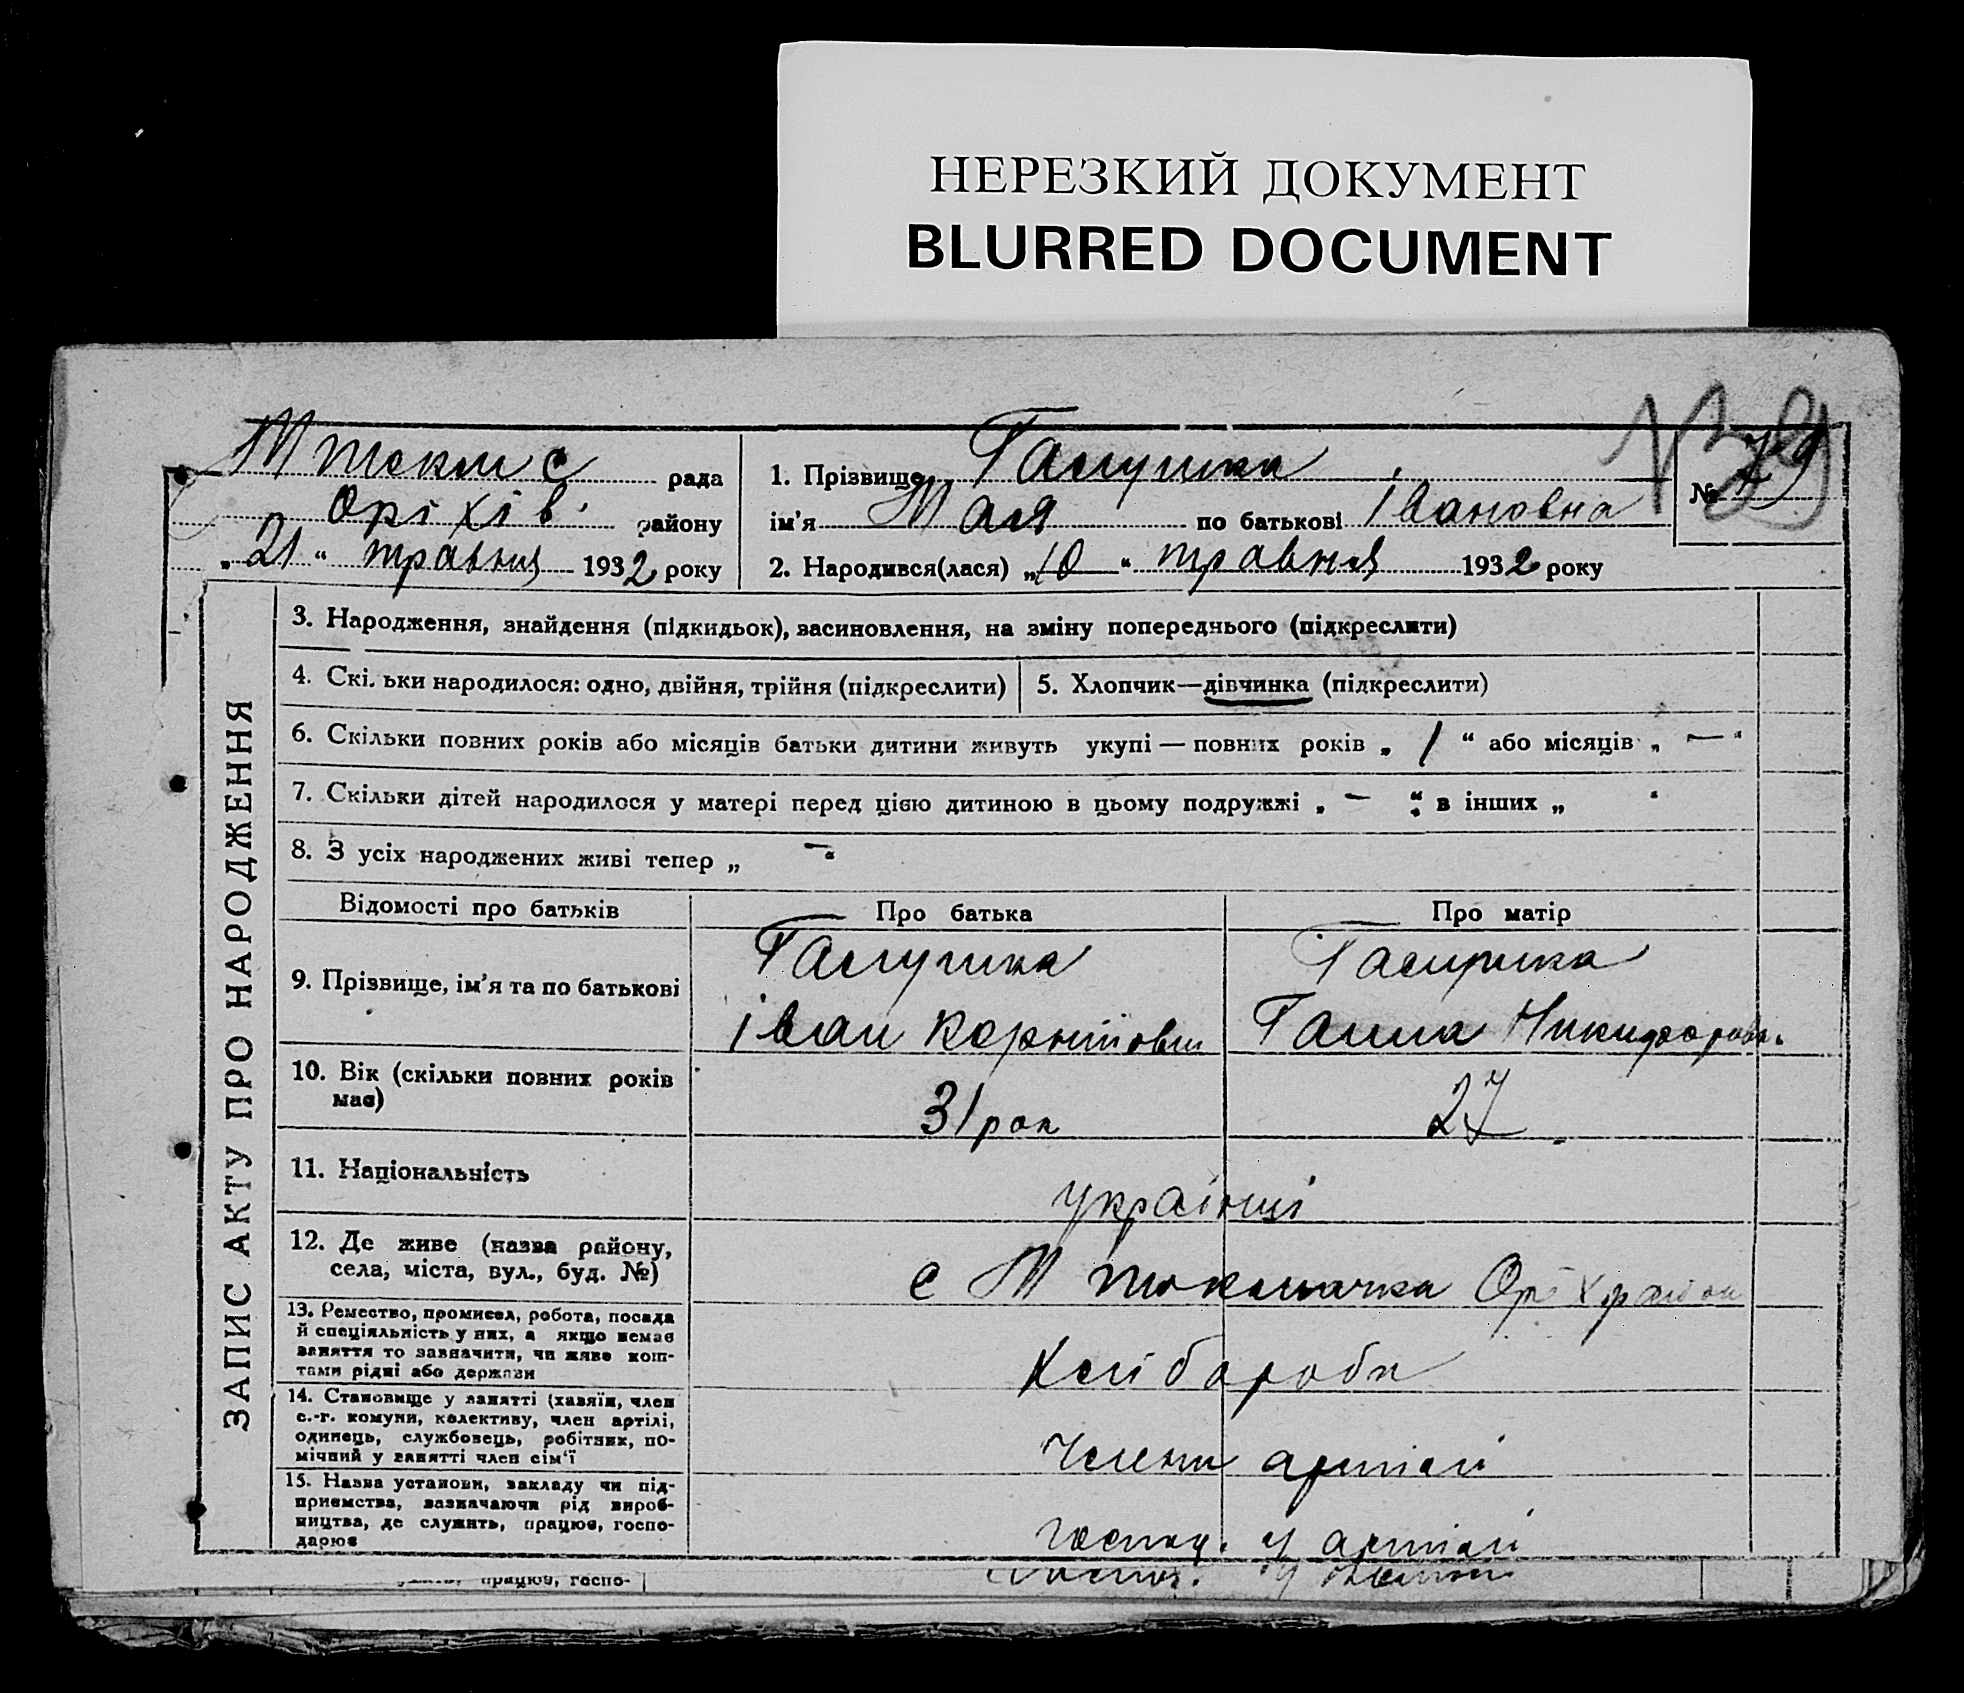 НЕРЕЗКИЙ ДОКУМЕНТ
BLURRED DOCUMENT
М Токм с рада
Оріхів. району
„21“ травня 1932 року
1. Прізвище Галушка
ім'я Мая по батькові Івановна
№ 79
2. Народився(лася) „10“ травня 1932 року
ЗАПИС АКТУ ПРО НАРОДЖЕННЯ
3. Народження, знайдення (підкидьок), васиновлення, на зміну попереднього (підкреслити)
4. Скільки народилося: одно, двійня, трійня (підкреслити)
5. Хлопчик—дівчинка (підкреслити)
6. Скільки повних років або місяців батьки дитини живуть укупі — повних років „ 1 “ або місяців „ — “
7. Скільки дітей народилося у матері перед цією дитиною в цьому подружжі „ — “ в інших „ “
8. З усіх народжених живі тепер „ — “
Відомості про батьків
Про батька
Про матір
9. Прізвище, ім'я та по батькові
Галушка
Іван Корнійович
Галушка
Ганна Никифоровн.
10. Вік (скільки повних років
має)
31 рок
27
11. Національність
українці
12. Де живе (назва району,
села, міста, вул., буд. №)
с М Токмачка Оріх району
13. Ремество, промисел, робота, посада
й спеціяльність у них, а якщо немає
заняття то зазначити, чи живе кош-
тами рідні або держави
Хліборобн
14. Становище у занятті (хазяїн, член
с.-г. комуни, колективу, член артілі,
одинець, службовець, робітник, по-
мічний у занятті член сім'ї
Члени артілі
15. Назва установи, закладу чи під-
приємства, зазначаючи рід вироб-
ництва, де служить, працює, госпо-
дарює
Господ. у артілі
працює, госпо-